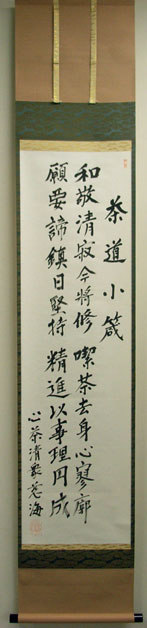 茶道小箴
和敬清寂今将修 喫茶去身心寥廓
願要諦鎮日堅持 精進以事理円成
心茶清衆荗海